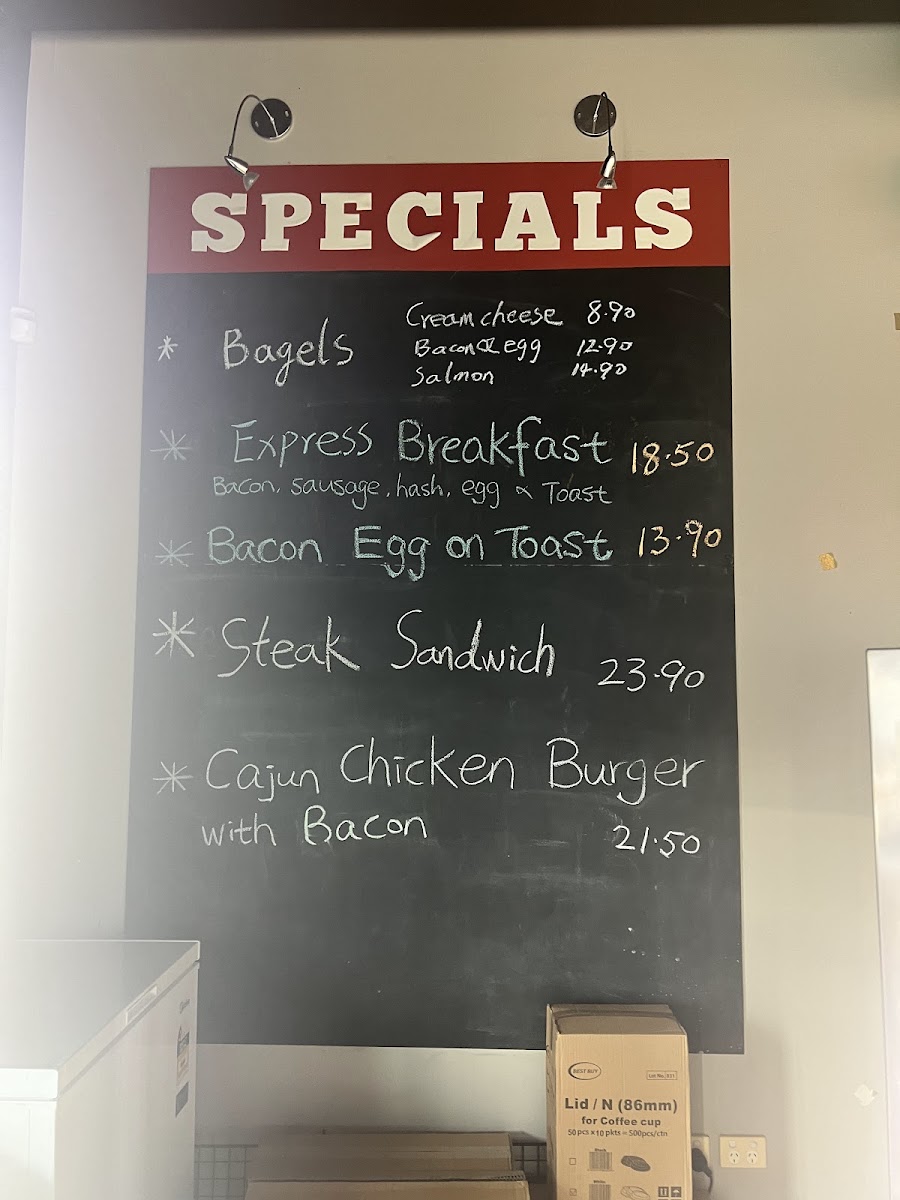 SPECIALS
* Bagels
Cream cheese 8.90
Bacon & egg 12.90
Salmon 14.90
* Express Breakfast 18.50
Bacon, sausage, hash, egg & Toast
* Bacon Egg on Toast 13.90
* Steak Sandwich 23.90
* Cajun Chicken Burger
with Bacon 21.50
BEST BUY
Lot No. 821
Lid / N (86mm)
for Coffee cup
50 pcs x 10 pkts = 500pcs/ctn